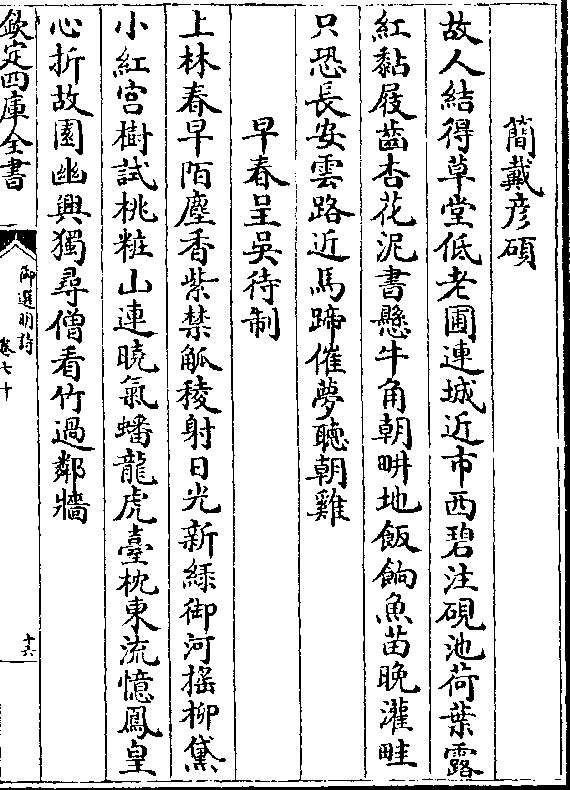 簡戴彥碩
故人結得草堂低老圃連城近市西碧注硯池荷葉露
紅黏屐齒杏花泥書懸牛角朝畊地飯餉魚苗晚灌畦
只恐長安雲路近馬蹄催夢聽朝雞
早春呈吳待制
上林春早陌塵香紫禁觚稜射日光新綠御河搖柳黛
小紅宮樹試桃粧山連曉氣蟠龍虎臺枕東流憶鳳皇
心折故園幽興獨尋僧看竹過鄰牆
欽定四庫全書
御選明詩
卷七十
十六